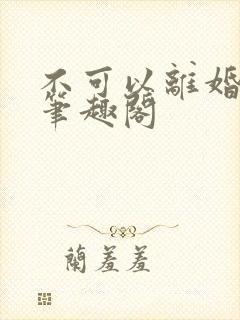 不可以離婚
筆趣閣
蘭羞羞